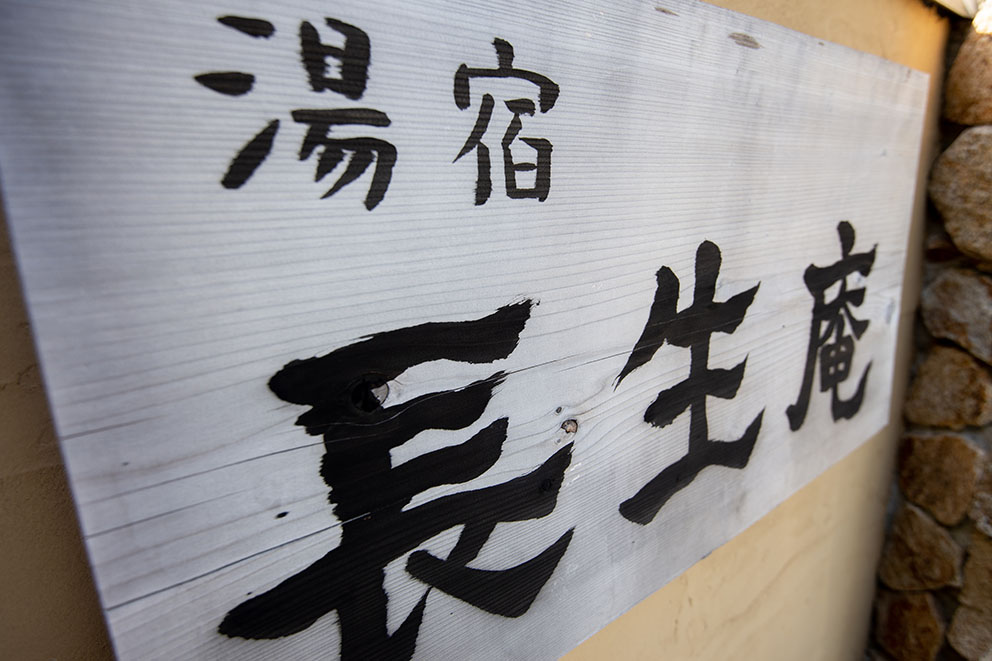 湯宿
長生庵